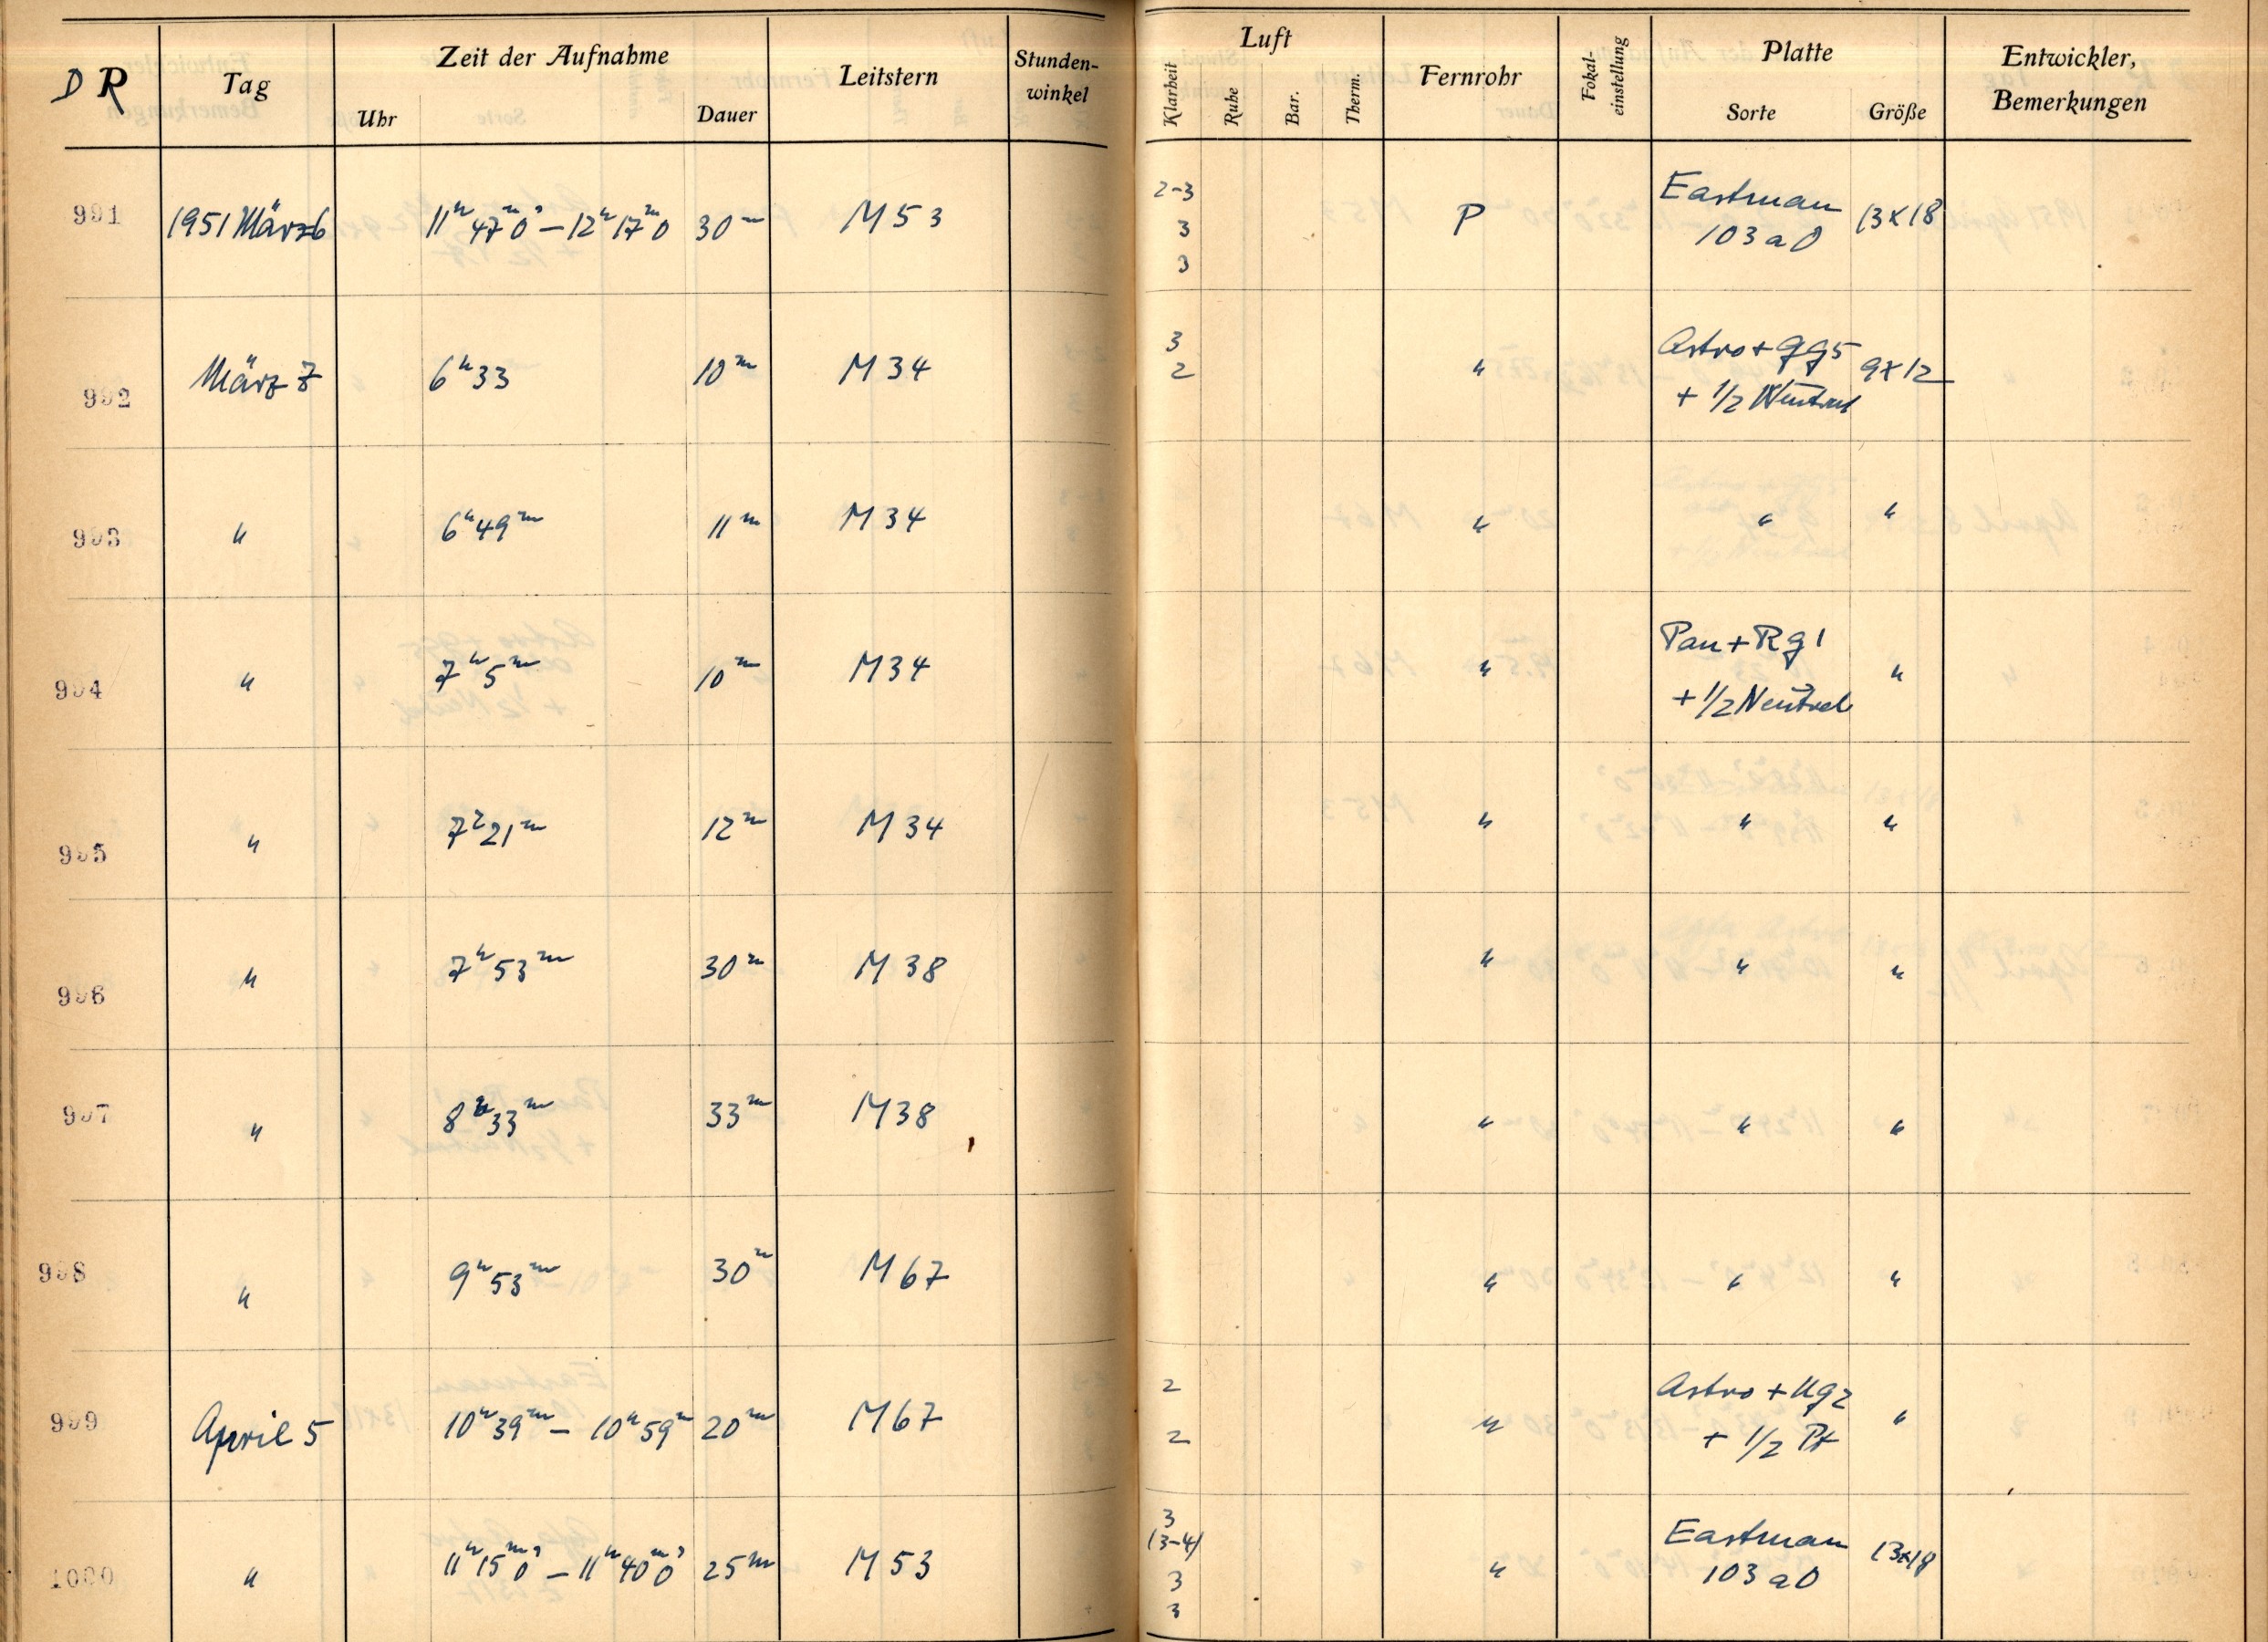 D R Tag Zeit der Aufnahme Uhr Dauer Leitstern Stunden-winkel Luft Klarheit Ruhe Bar. Therm. Fernrohr Fokal-einstellung Platte Sorte Größe Entwickler, Bemerkungen
991 1951 März 6 11h 47m 0s – 12h 17m 0 30m M 53 2-3 3 3 P Eastman 103 a O 13x18
992 März 7 6h 33 10m M 34 3 2 " Astro + Gg5 + 1/2 Neutral 9x12
993 " 6h 49m 11m M 34 " " "
994 " 7h 5m 10m M 34 " Pan + Rg 1 + 1/2 Neutral "
995 " 7h 21m 12m M 34 " " "
996 " 7h 53m 30m M 38 " " "
997 " 8h 33m 33m M 38 " " "
998 " 9h 53m 30m M 67 " " "
999 April 5 10h 39m – 10h 59m 20m M 67 2 2 " Astro + Ug2 + 1/2 Pt "
1000 " 11h 15m 0s – 11h 40m 0s 25m M 53 3 (3-4) 3 3 " Eastman 103 a O 13x18